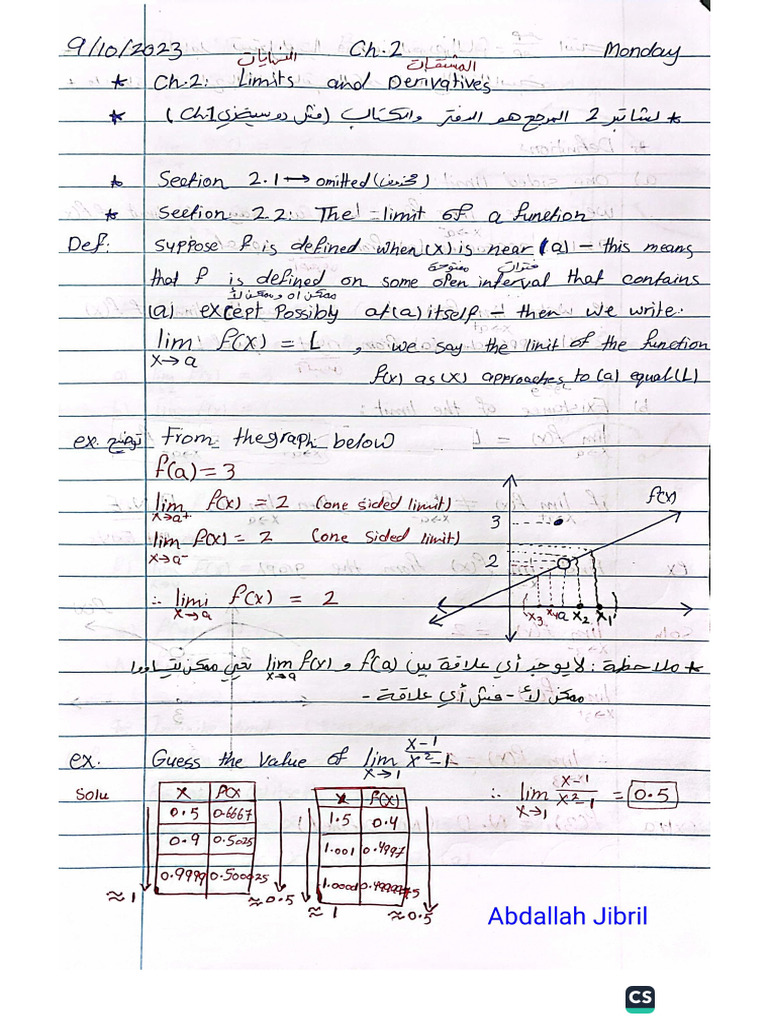 9/10/2023 Ch.2 Monday
النهايات المشتقات
* Ch.2: Limits and Derivatives
* لشابتر 2 المرجع هو الدفتر والكتاب (مش دوسية زي Ch.1)
* Section 2.1 → omitted (محذوف)
* Section 2.2: The limit of a function
Def: Suppose f is defined when (x) is near (a) - this means
فترات مفتوحة
that f is defined on some open interval that contains
ممكن اه وممكن لأ
(a) except possibly at (a) itself - then we write:
lim f(x) = L , we say the limit of the function
x→a
f(x) as (x) approaches to (a) equal (L)
ex. توضيح From the graph below
f(a) = 3
lim f(x) = 2 (one sided limit)
x→a+
lim f(x) = 2 (one sided limit)
x→a-
∴ limi f(x) = 2
x→a
f(x)
3
2
x3 x4 a x2 x1
* ملاحظة: لا يوجد أي علاقة بين f(a) و lim f(x) يعني ممكن يتساووا
x→a
ممكن لأ - مش أي علاقة -
ex. Guess the value of lim x-1/x²-1
x→1
Solu
x f(x)
0.5 0.6667
0.9 0.5025
0.9999 0.500025
≈1 ≈0.5
x f(x)
1.5 0.4
1.001 0.4997
≈1 ≈0.5
∴ lim x-1/x²-1 = 0.5
x→1
Abdallah Jibril
CS